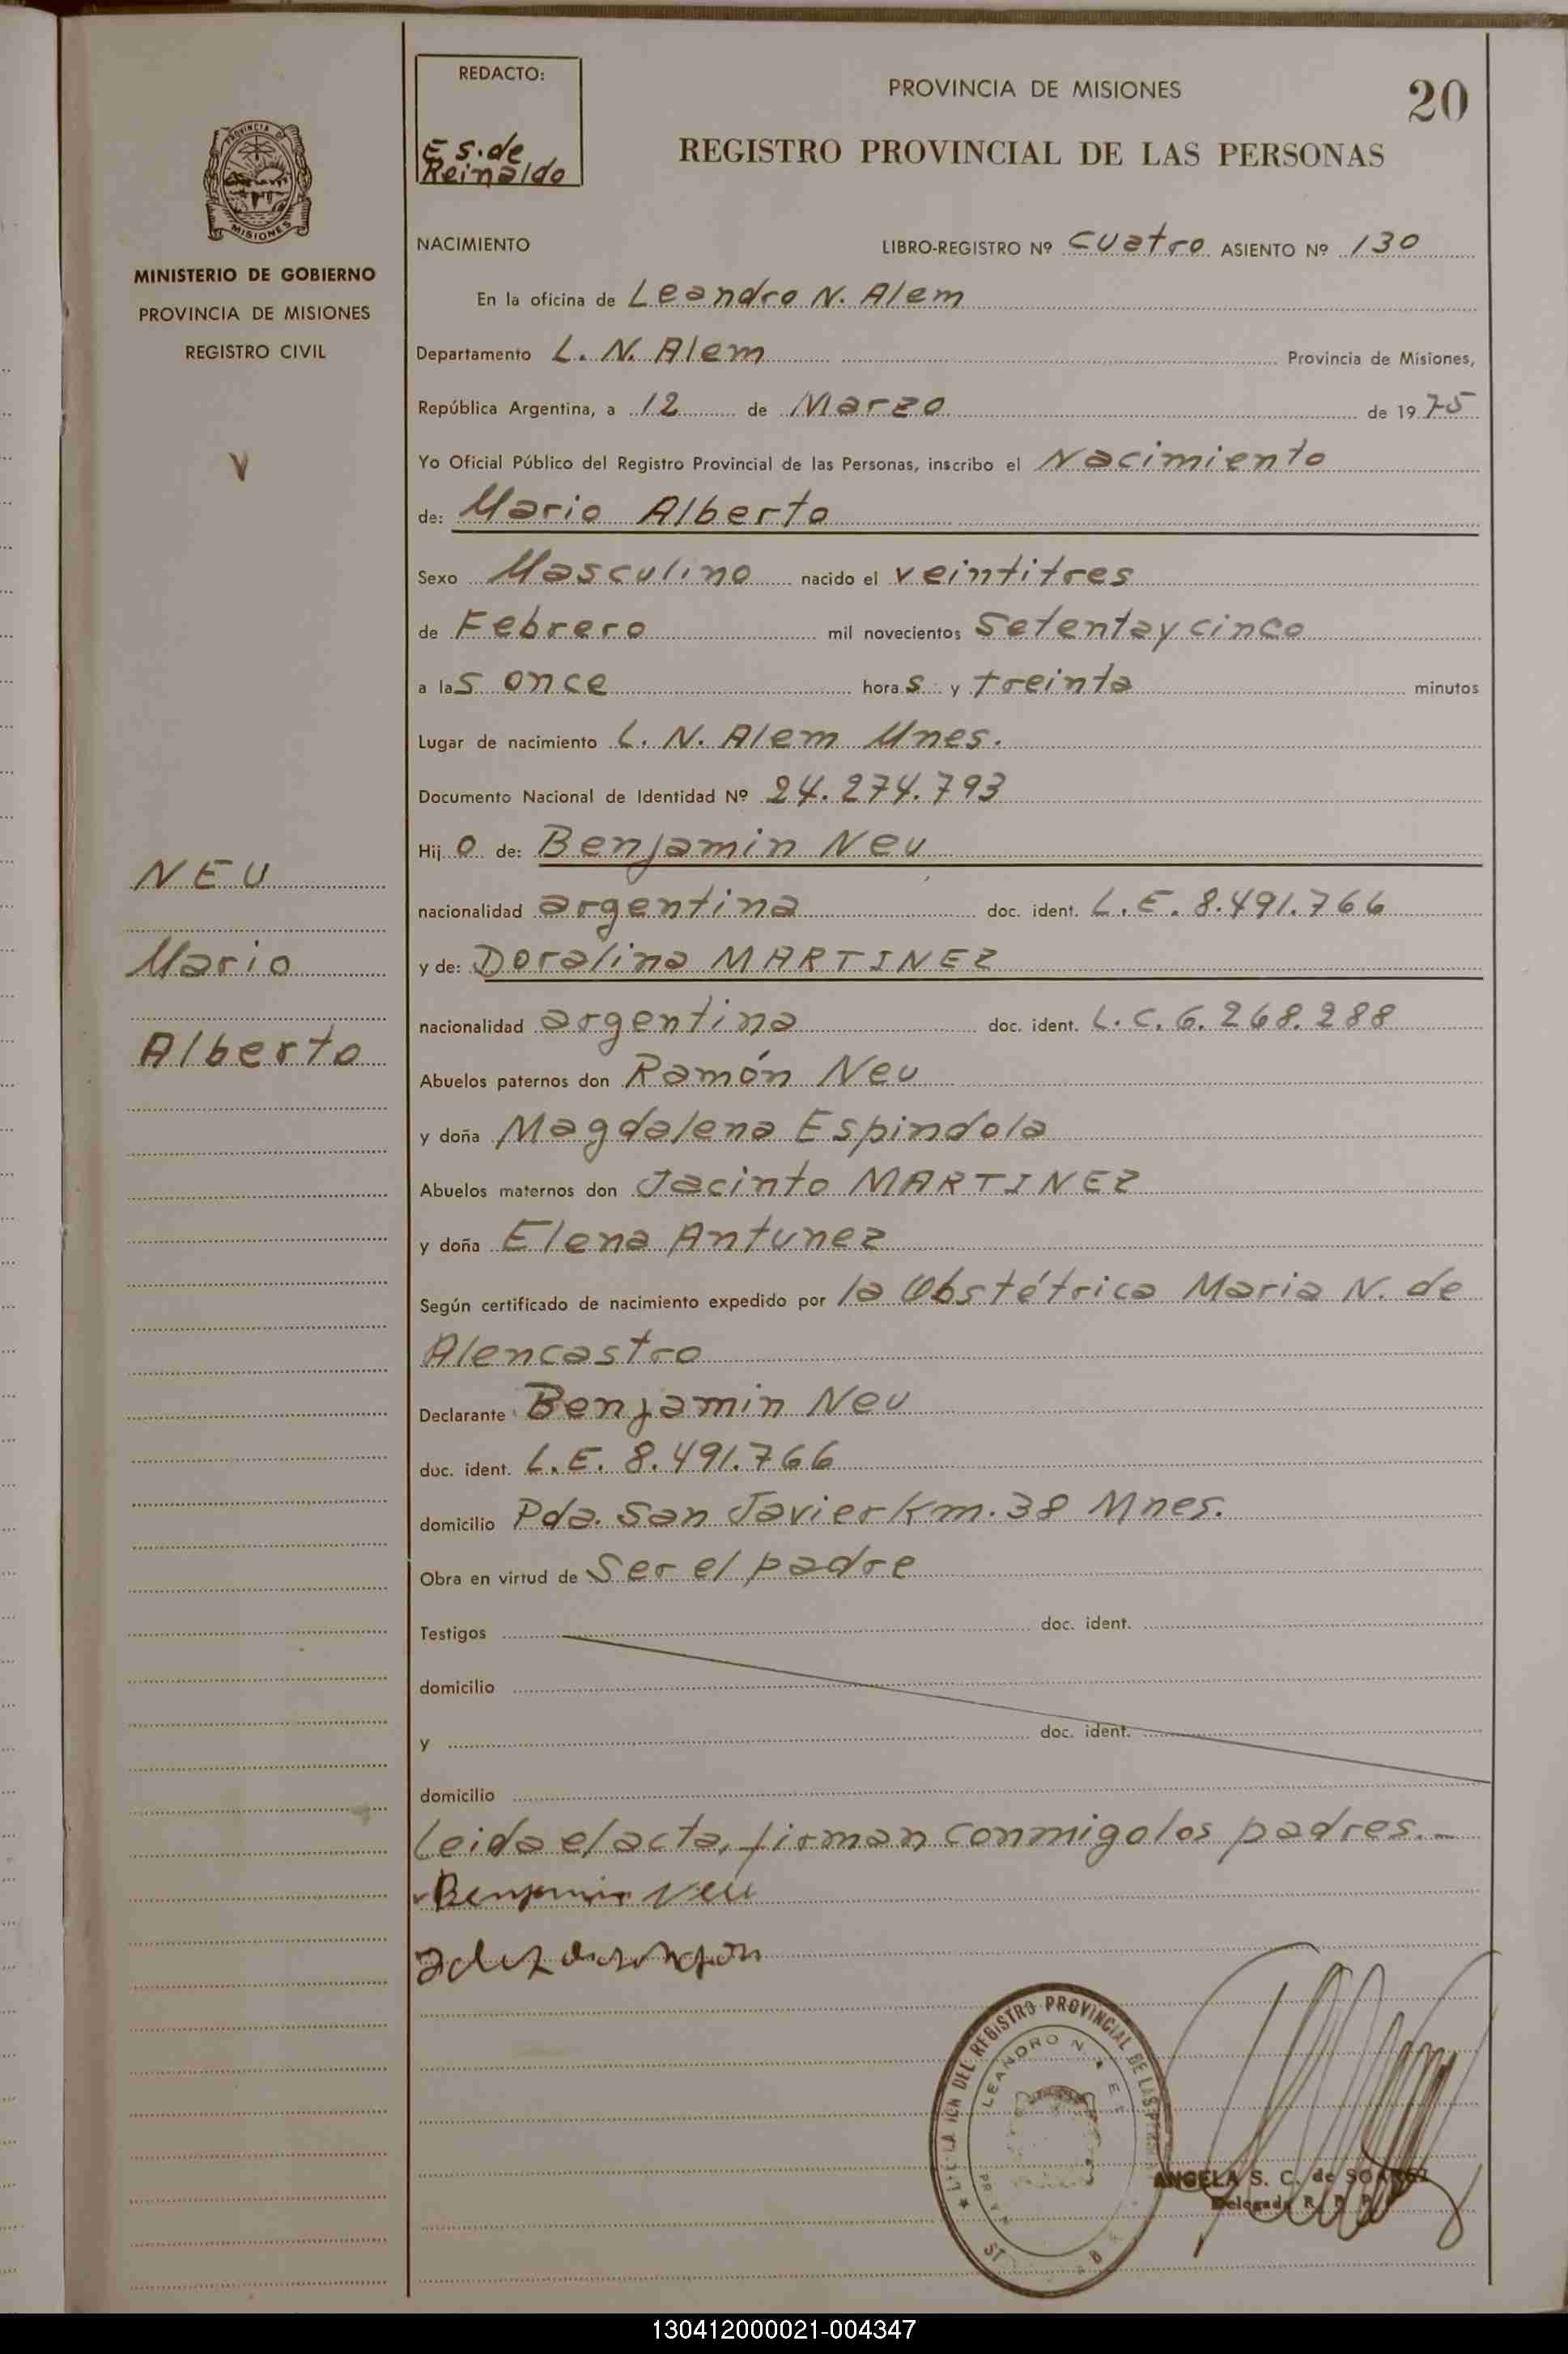 REDACTO:
E s. de
Reinaldo
PROVINCIA DE MISIONES
20
REGISTRO PROVINCIAL DE LAS PERSONAS
PROVINCIA DE
MISIONES
MINISTERIO DE GOBIERNO
PROVINCIA DE MISIONES
REGISTRO CIVIL
V
NEU
Mario
Alberto
NACIMIENTO LIBRO-REGISTRO Nº cuatro ASIENTO Nº 130
En la oficina de Leandro N. Alem
Departamento L. N. Alem Provincia de Misiones,
República Argentina, a 12 de Marzo de 1975
Yo Oficial Público del Registro Provincial de las Personas, inscribo el Nacimiento
de: Mario Alberto
Sexo Masculino nacido el veintitres
de Febrero mil novecientos Setenta y cinco
a las once horas y treinta minutos
Lugar de nacimiento L. N. Alem Mnes.
Documento Nacional de Identidad Nº 24.274.793
Hijo de: Benjamin Neu
nacionalidad argentina doc. ident. L.E. 8.491.766
y de: Doralina MARTINEZ
nacionalidad argentina doc. ident. L.C. 6.268.288
Abuelos paternos don Ramón Neu
y doña Magdalena Espindola
Abuelos maternos don Jacinto MARTINEZ
y doña Elena Antunez
Según certificado de nacimiento expedido por la Obstétrica Maria N. de
Alencastro
Declarante Benjamin Neu
doc. ident. L.E. 8.491.766
domicilio Pda. San Javier Km. 38 Mnes.
Obra en virtud de Ser el padre
Testigos doc. ident.
domicilio
y doc. ident.
domicilio
Leida el acta, firman conmigo los padres.-
Benjamin Neu
DEL REGISTRO PROVINCIAL DE LAS
LEANDRO N.
ANGELA S. C. de SOAREZ
Delegada R. P. P.
130412000021-004347